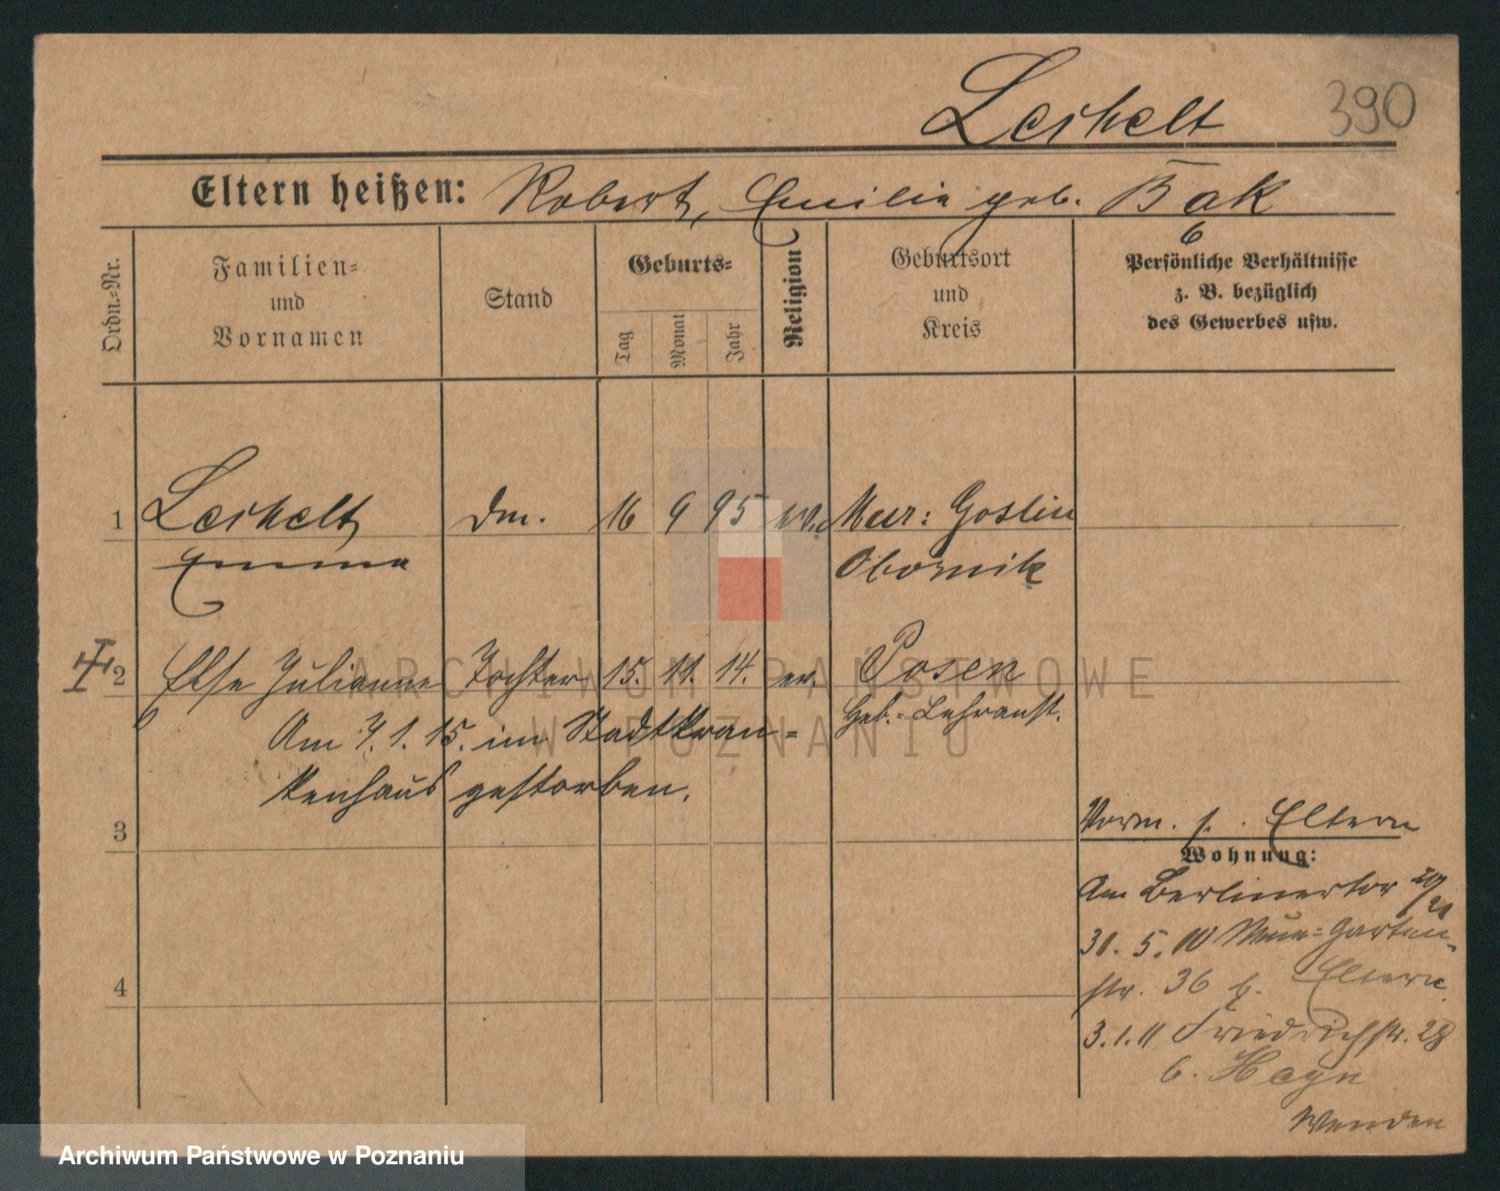 Leskelt 390
Eltern heißen: Robert, Emilie geb. Bak
Ordn.-Nr.
Familien-
und
Vornamen
Stand
Geburts-
Tag
Monat
Jahr
Religion
Geburtsort
und
Kreis
Persönliche Verhältnisse
z. B. bezüglich
des Gewerbes usw.
1 Leskelt dm. 16 9 95 Mur: Goslin
Emma Obornik
2 Else Julianne Tochter 15. 11. 14. ev. Posen
Geb.-Lehranst.
Am 7. 1. 15. im Stadtkran-
kenhaus gestorben.
3
4
Vorm. s. Eltern
Wohnung:
Am Berlinertor
30. 5. 10 Garten-
str. 36 b. Eltern
3.1.11 Friedrichstr. 28
b. Heyn
Wenden
ARCHIWUM PAŃSTWOWE
W POZNANIU
Archiwum Państwowe w Poznaniu